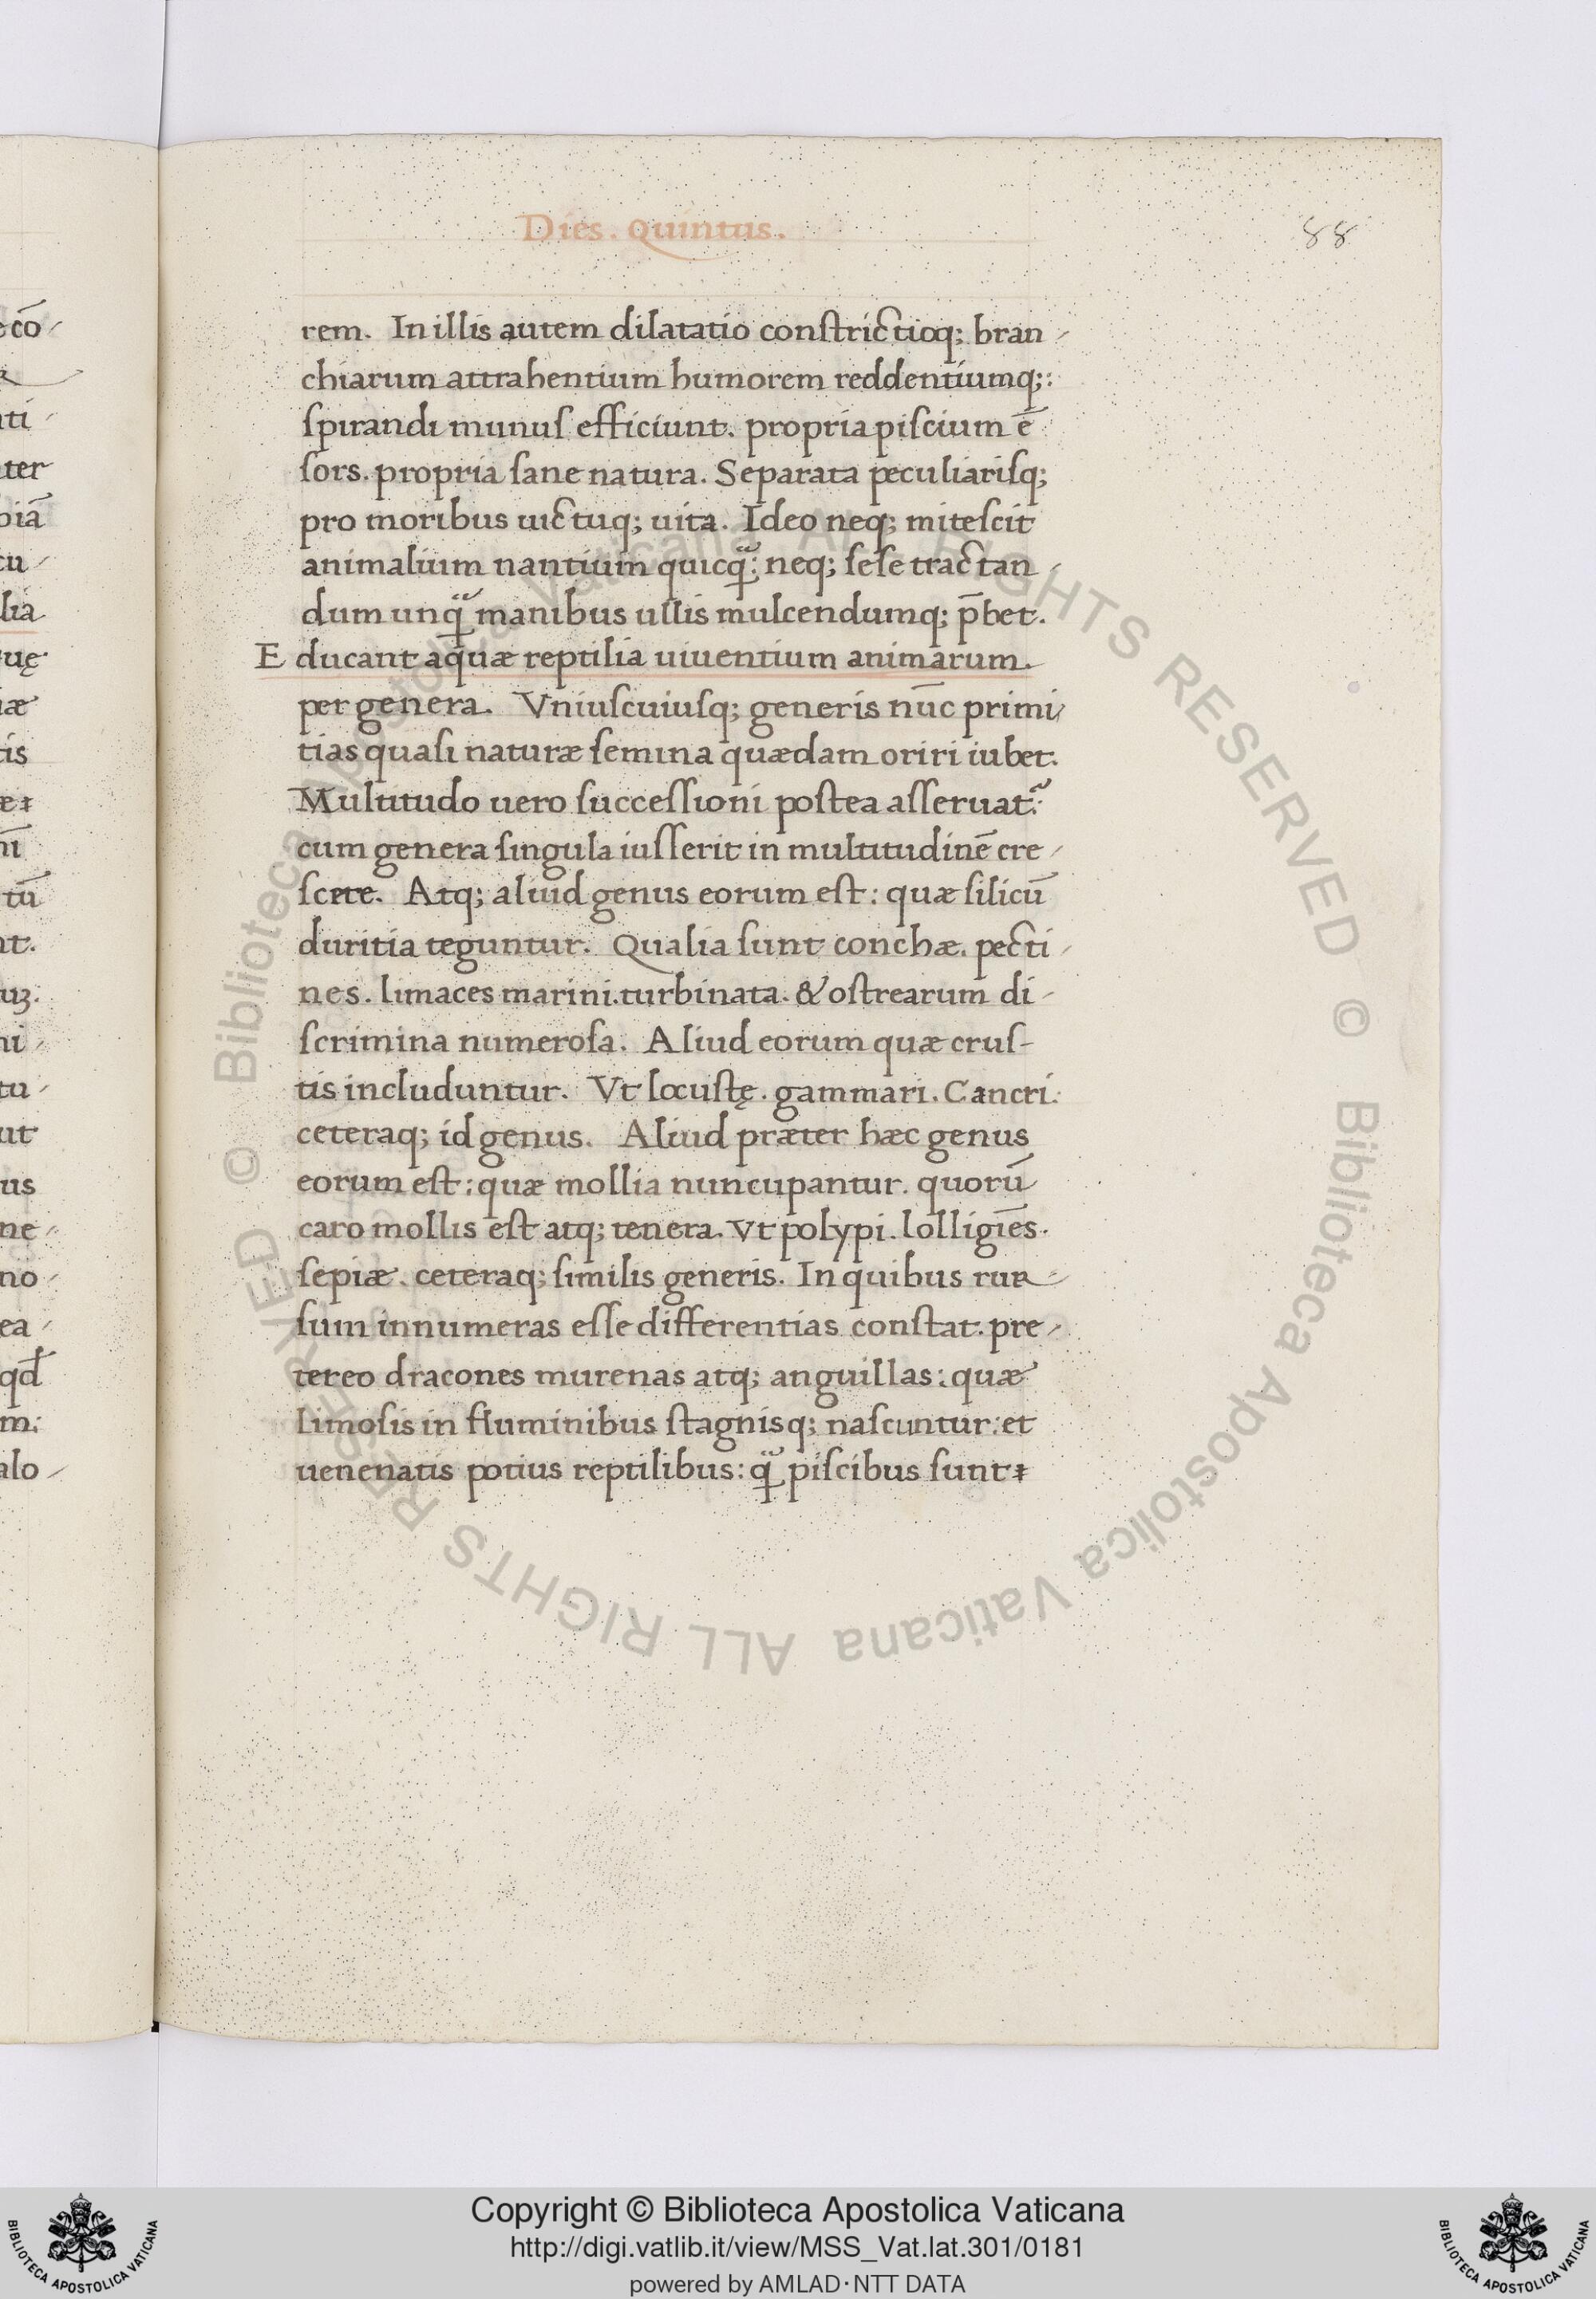 Dies. Quintus.
88
rem. In illis autem dilatatio constrictioq; bran-
chiarum attrahentium humorem reddentiumq;:
spirandi munus efficiunt. propria piscium ē
sors. propria sane natura. Separata peculiarisq;
pro moribus uictuq; uita. Ideo neq; mitescit
animalium nantium quicq̃: neq; sese tractan-
dum unq̃ manibus ullis mulcendumq; p̄bet.
Educant aquæ reptilia uiuentium animarum.
per genera. Vniuscuiusq; generis nūc primi-
tias quasi naturæ semina quædam oriri iubet.
Multitudo uero successioni postea asseruat᷑:
cum genera singula iusserit in multitudinē cre-
scere. Atq; aliud genus eorum est: quæ silicū
duritia teguntur. Qualia sunt conchæ. pecti-
nes. limaces marini. turbinata. & ostrearum di-
scrimina numerosa. Aliud eorum quæ crus-
tis includuntur. Vt locustę. gammari. Cancri.
ceteraq; id genus. Aliud præter hæc genus
eorum est: quæ mollia nuncupantur. quorū
caro mollis est atq; tenera. Vt polypi. lolligīes.
sepiæ. ceteraq; similis generis. In quibus rur-
sum innumeras esse differentias constat. pre-
tereo dracones murenas atq; anguillas: quæ
limosis in fluminibus stagnisq; nascuntur: et
uenenatis potius reptilibus: q̃ piscibus sunt
co-
ti-
ter
biā
cu-
lia
uę
iæ
tis
tū
nt.
ni-
tu-
ut
us
ne-
no-
ea-
qd̄
m:
alo-
© Biblioteca Apostolica Vaticana ALL RIGHTS RESERVED © Biblioteca Apostolica Vaticana ALL RIGHTS RESERVED
Copyright © Biblioteca Apostolica Vaticana
http://digi.vatlib.it/view/MSS_Vat.lat.301/0181
powered by AMLAD·NTT DATA
BIBLIOTECA APOSTOLICA VATICANA
BIBLIOTECA APOSTOLICA VATICANA